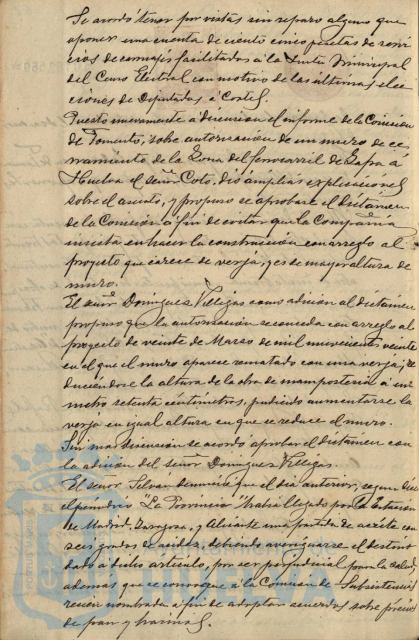 Se acordó tener por vistas sin reparo alguno que
oponer una cuenta de ciento cinco pesetas de servi-
cios de carruajes facilitados á la Junta Municipal
del Censo Electoral con motivo de las últimas elec-
ciones de Diputados á Cortes.
Puesto nuevamente á discusion el informe de la Comision
de Fomento, sobre autorizacion de un muro de ce-
rramiento de la Zona del ferrocarril de Zafra á
Huelva el señor Coto, dió ámplias explicaciones
sobre el asunto, y propuso se aprobase el dictámen
de la Comision á fin de evitar que la Compañia
insista en hacer la construccion con arreglo al
proyecto que carece de verja, y es de mayor altura de
muro.
El señor Dominguez Villegas como adicion al dictámen
propuso que la autorizacion se conceda con arreglo al
proyecto de veinte de Marzo de mil novecientos veinte
en el que el muro aparece rematado con una verja; re-
duciéndose la altura de la obra de mamposteria á un
metro setenta centímetros, pudiendo aumentarse la
verja en igual altura en que se reduce el muro.
Sin mas discusion se acordó aprobar el dictámen con
la adicion del señor Dominguez Villegas.
El señor Selvan denunció que el dia anterior, segun dice
el periodico "La Provincia" habia llegado por la Estacion
de Madrid, Zaragoza, y Alicante una partida de aceite con
seis grados de acidez, debiendo averiguarse el destino
dado á dicho articulo, por ser perjudicial para la salud,
ademas que se convoque á la Comision de Subsistencias
recien nombrada á fin de adoptar acuerdos sobre precios
de pan y harinas.
HUELVA